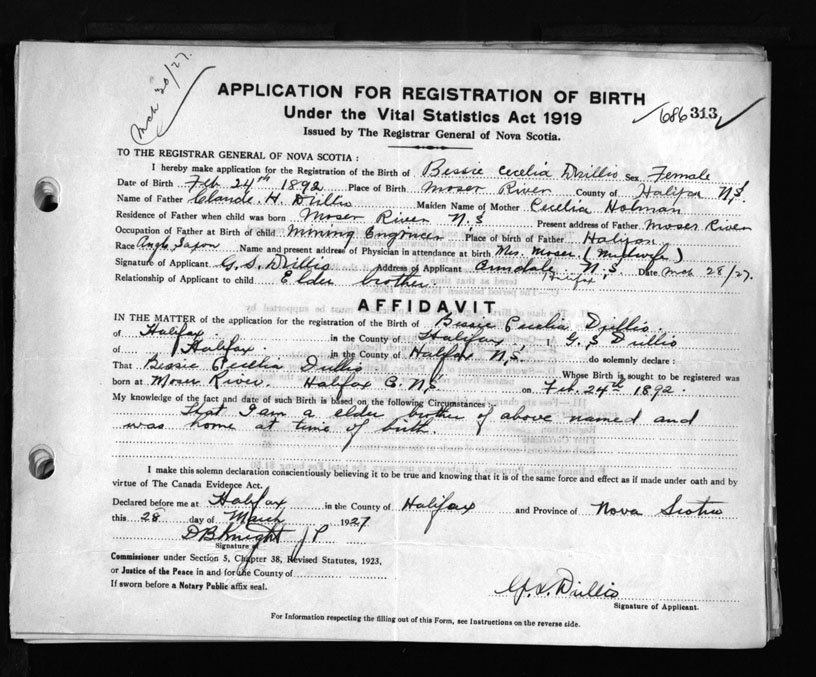 Mch 30/27.
APPLICATION FOR REGISTRATION OF BIRTH
Under the Vital Statistics Act 1919
686 313
Issued by The Registrar General of Nova Scotia.
TO THE REGISTRAR GENERAL OF NOVA SCOTIA :
I hereby make application for the Registration of the Birth of Bessie Cecelia Drillio Sex Female
Date of Birth Feb. 24th 1892 Place of Birth Moser River County of Halifax N.S.
Name of Father Claude. H. Drillio Maiden Name of Mother Cecelia Holman
Residence of Father when child was born Moser River N.S Present address of Father Moser River
Occupation of Father at Birth of child Mining Engineer Place of birth of Father Halifax
Race Anglo Saxon Name and present address of Physician in attendance at birth Mrs. Moser. (Midwife)
Signature of Applicant G. S. Drillio Address of Applicant Armdale Halifax N.S Date Mch 28/27.
Relationship of Applicant to child Elder brother.
AFFIDAVIT
IN THE MATTER of the application for the registration of the Birth of Bessie Cecelia Drillio.
of Halifax in the County of Halifax, I G. S Drillio
of Halifax. in the County of Halifax N.S. do solemnly declare :
That Bessie Cecelia Drillio Whose Birth is sought to be registered was
born at Moser River. Halifax C. N.S. on Feb. 24th 1892.
My knowledge of the fact and date of such Birth is based on the following Circumstances :-
That I am a elder brother of above named and
was home at time of birth.
I make this solemn declaration conscientiously believing it to be true and knowing that it is of the same force and effect as if made under oath and by
virtue of The Canada Evidence Act.
Declared before me at Halifax in the County of Halifax and Province of Nova Scotia
this 28 day of March 1927
D B Knight J P
Signature of
Commissioner under Section 5, Chapter 38, Revised Statutes, 1923,
or Justice of the Peace in and for the County of
If sworn before a Notary Public affix seal.
G. S. Drillio
Signature of Applicant.
For Information respecting the filling out of this Form, see Instructions on the reverse side.